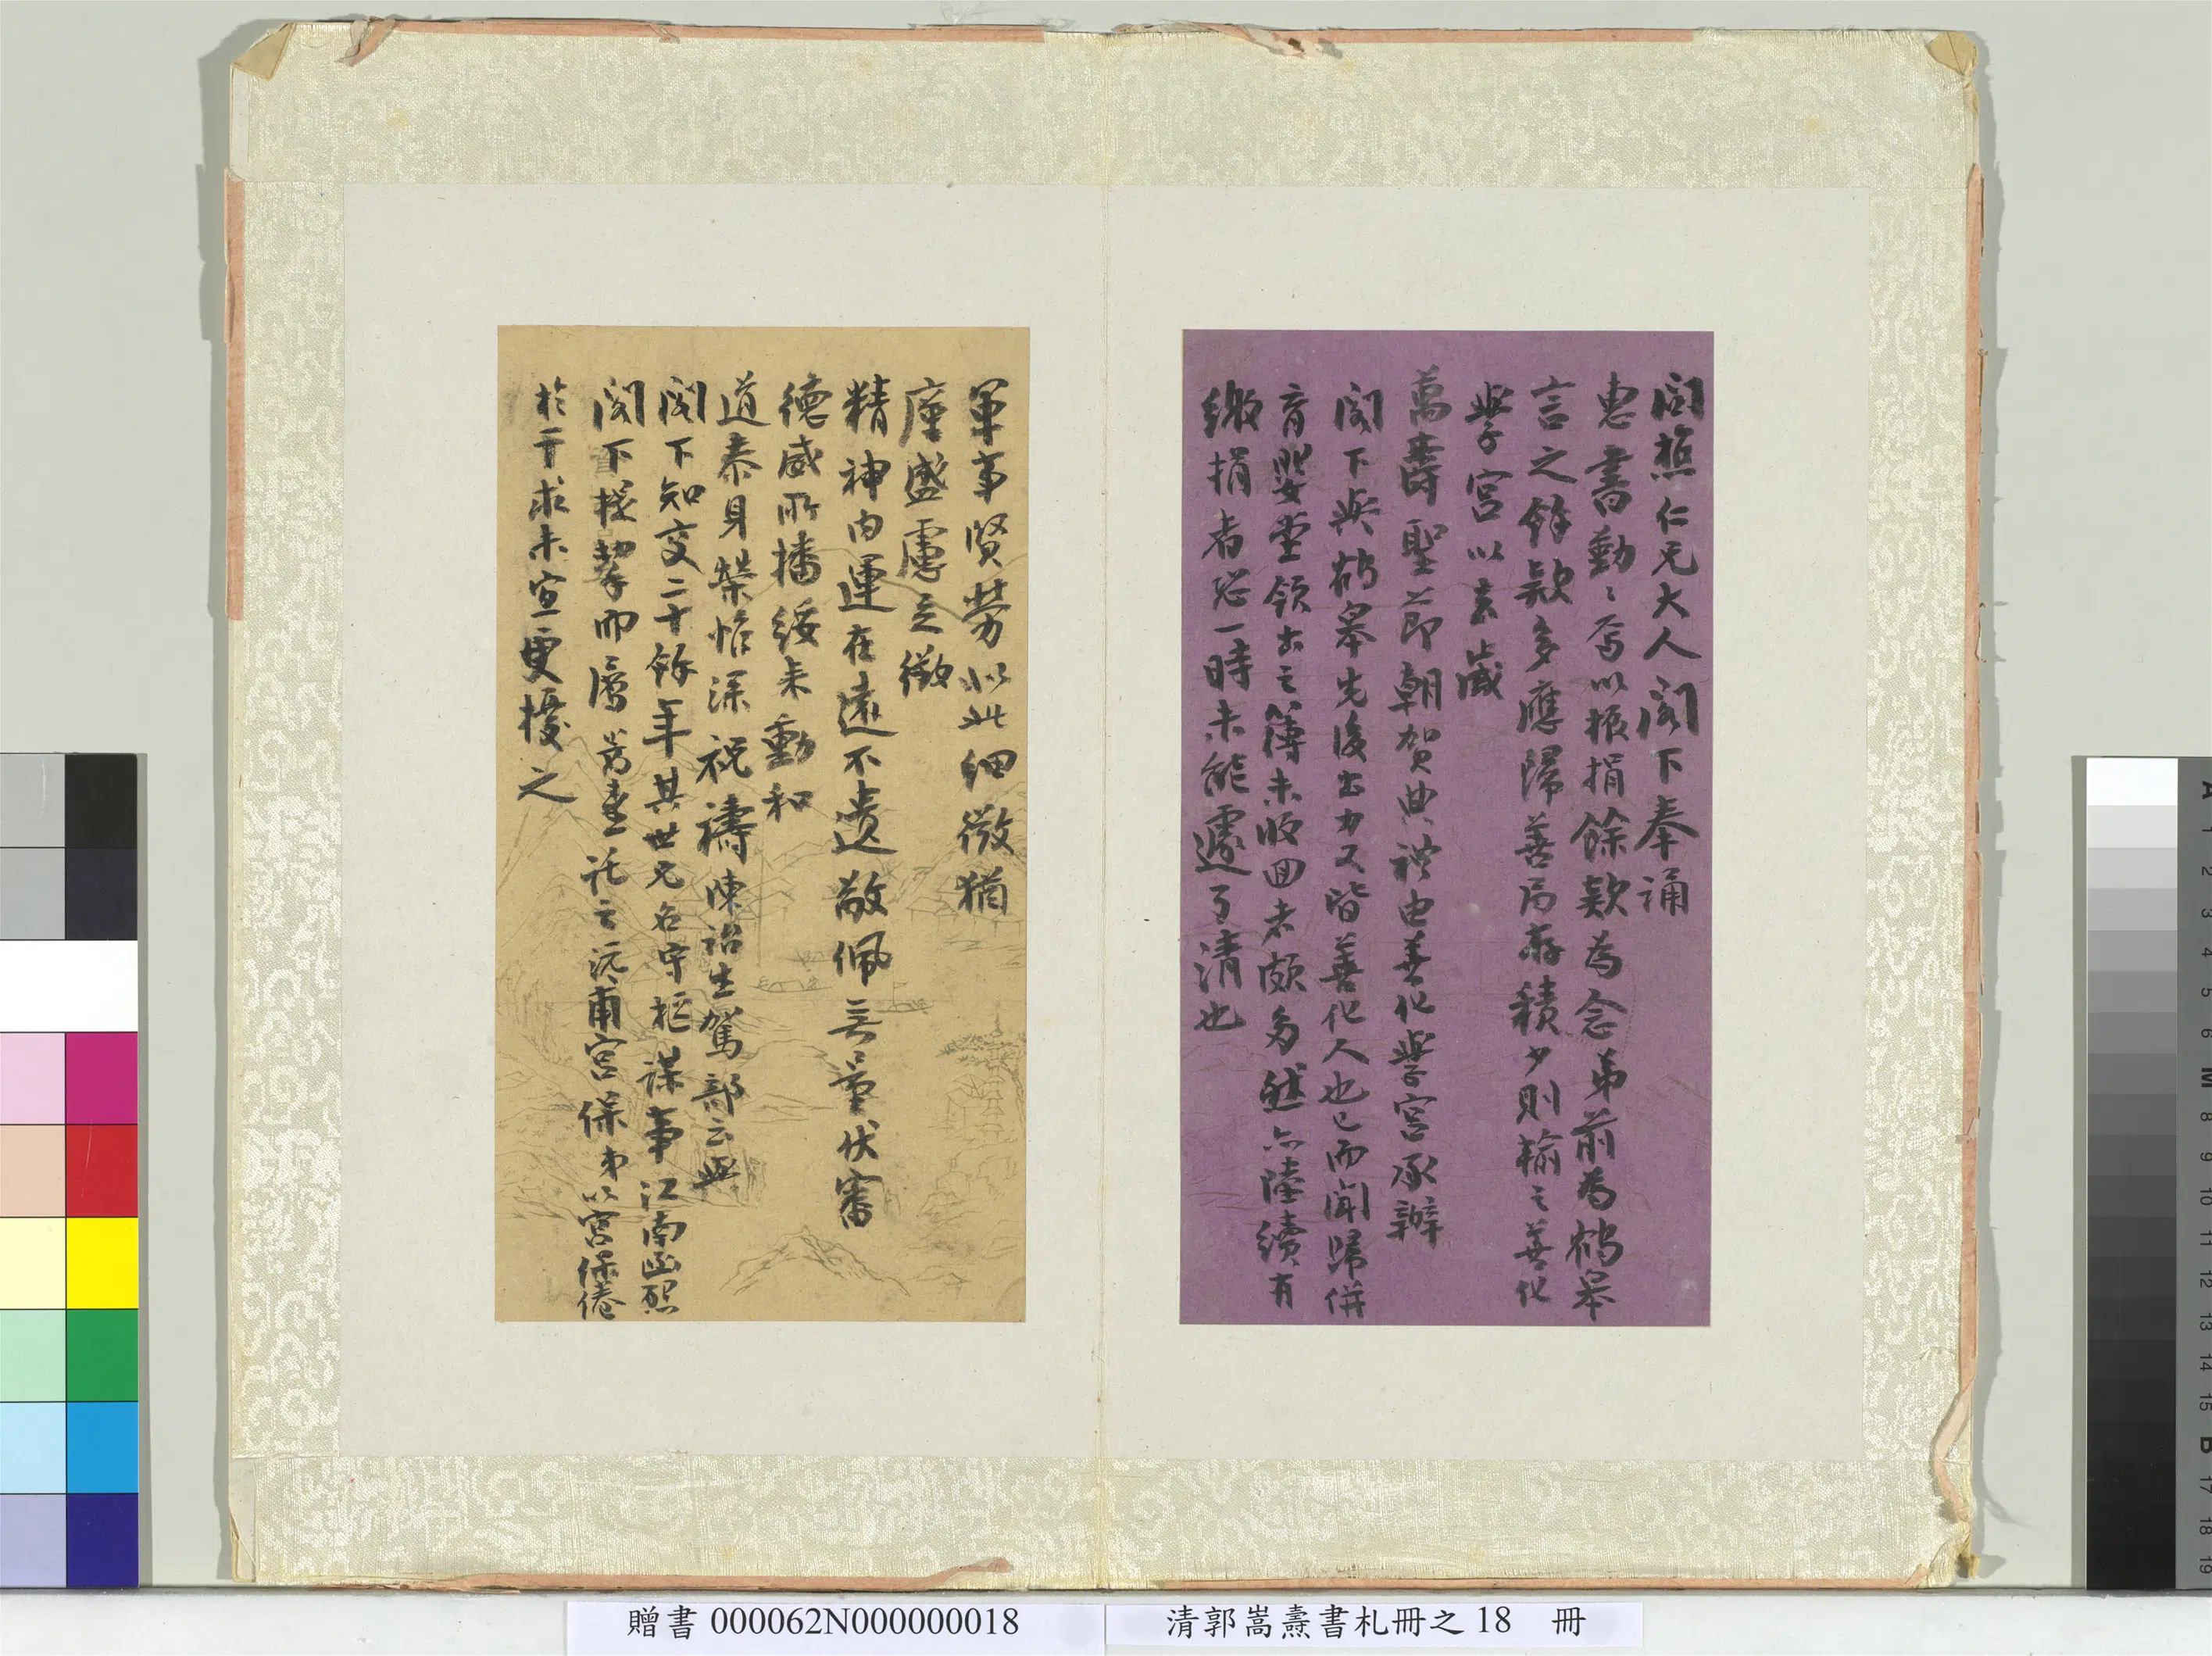 閬樵仁兄大人閣下奉誦
惠書勤勤焉以振捐餘款為念弟前為鶴皋
言之餘款多應歸善局存積少則輸之善化
學宮以去歲
萬壽聖節朝賀典禮由善化學宮承辦
閣下與鶴皋先後出力又皆善化人也已而聞歸併
育嬰堂領出之簿未收回者頗多然亦陸續有
繳捐者恐一時未能遽了清也
軍事賢勞似此細微猶
廑盛慮之徵
精神內運在遠不遺敬佩無量伏審
德威所播綏來動和
道泰身榮惟深祝禱陳詒生駕部云與
閣下知交二十餘年其世兄名宇樞謀事江南函懇
閣下提挈而屬為達託之沅甫宮保弟以宮保倦
於干求未宜更擾之
贈書 000062N000000018
清郭嵩燾書札冊之 18 冊
A 1 2 3 4 5 6 M 8 9 10 11 12 13 14 15 B 17 18 19